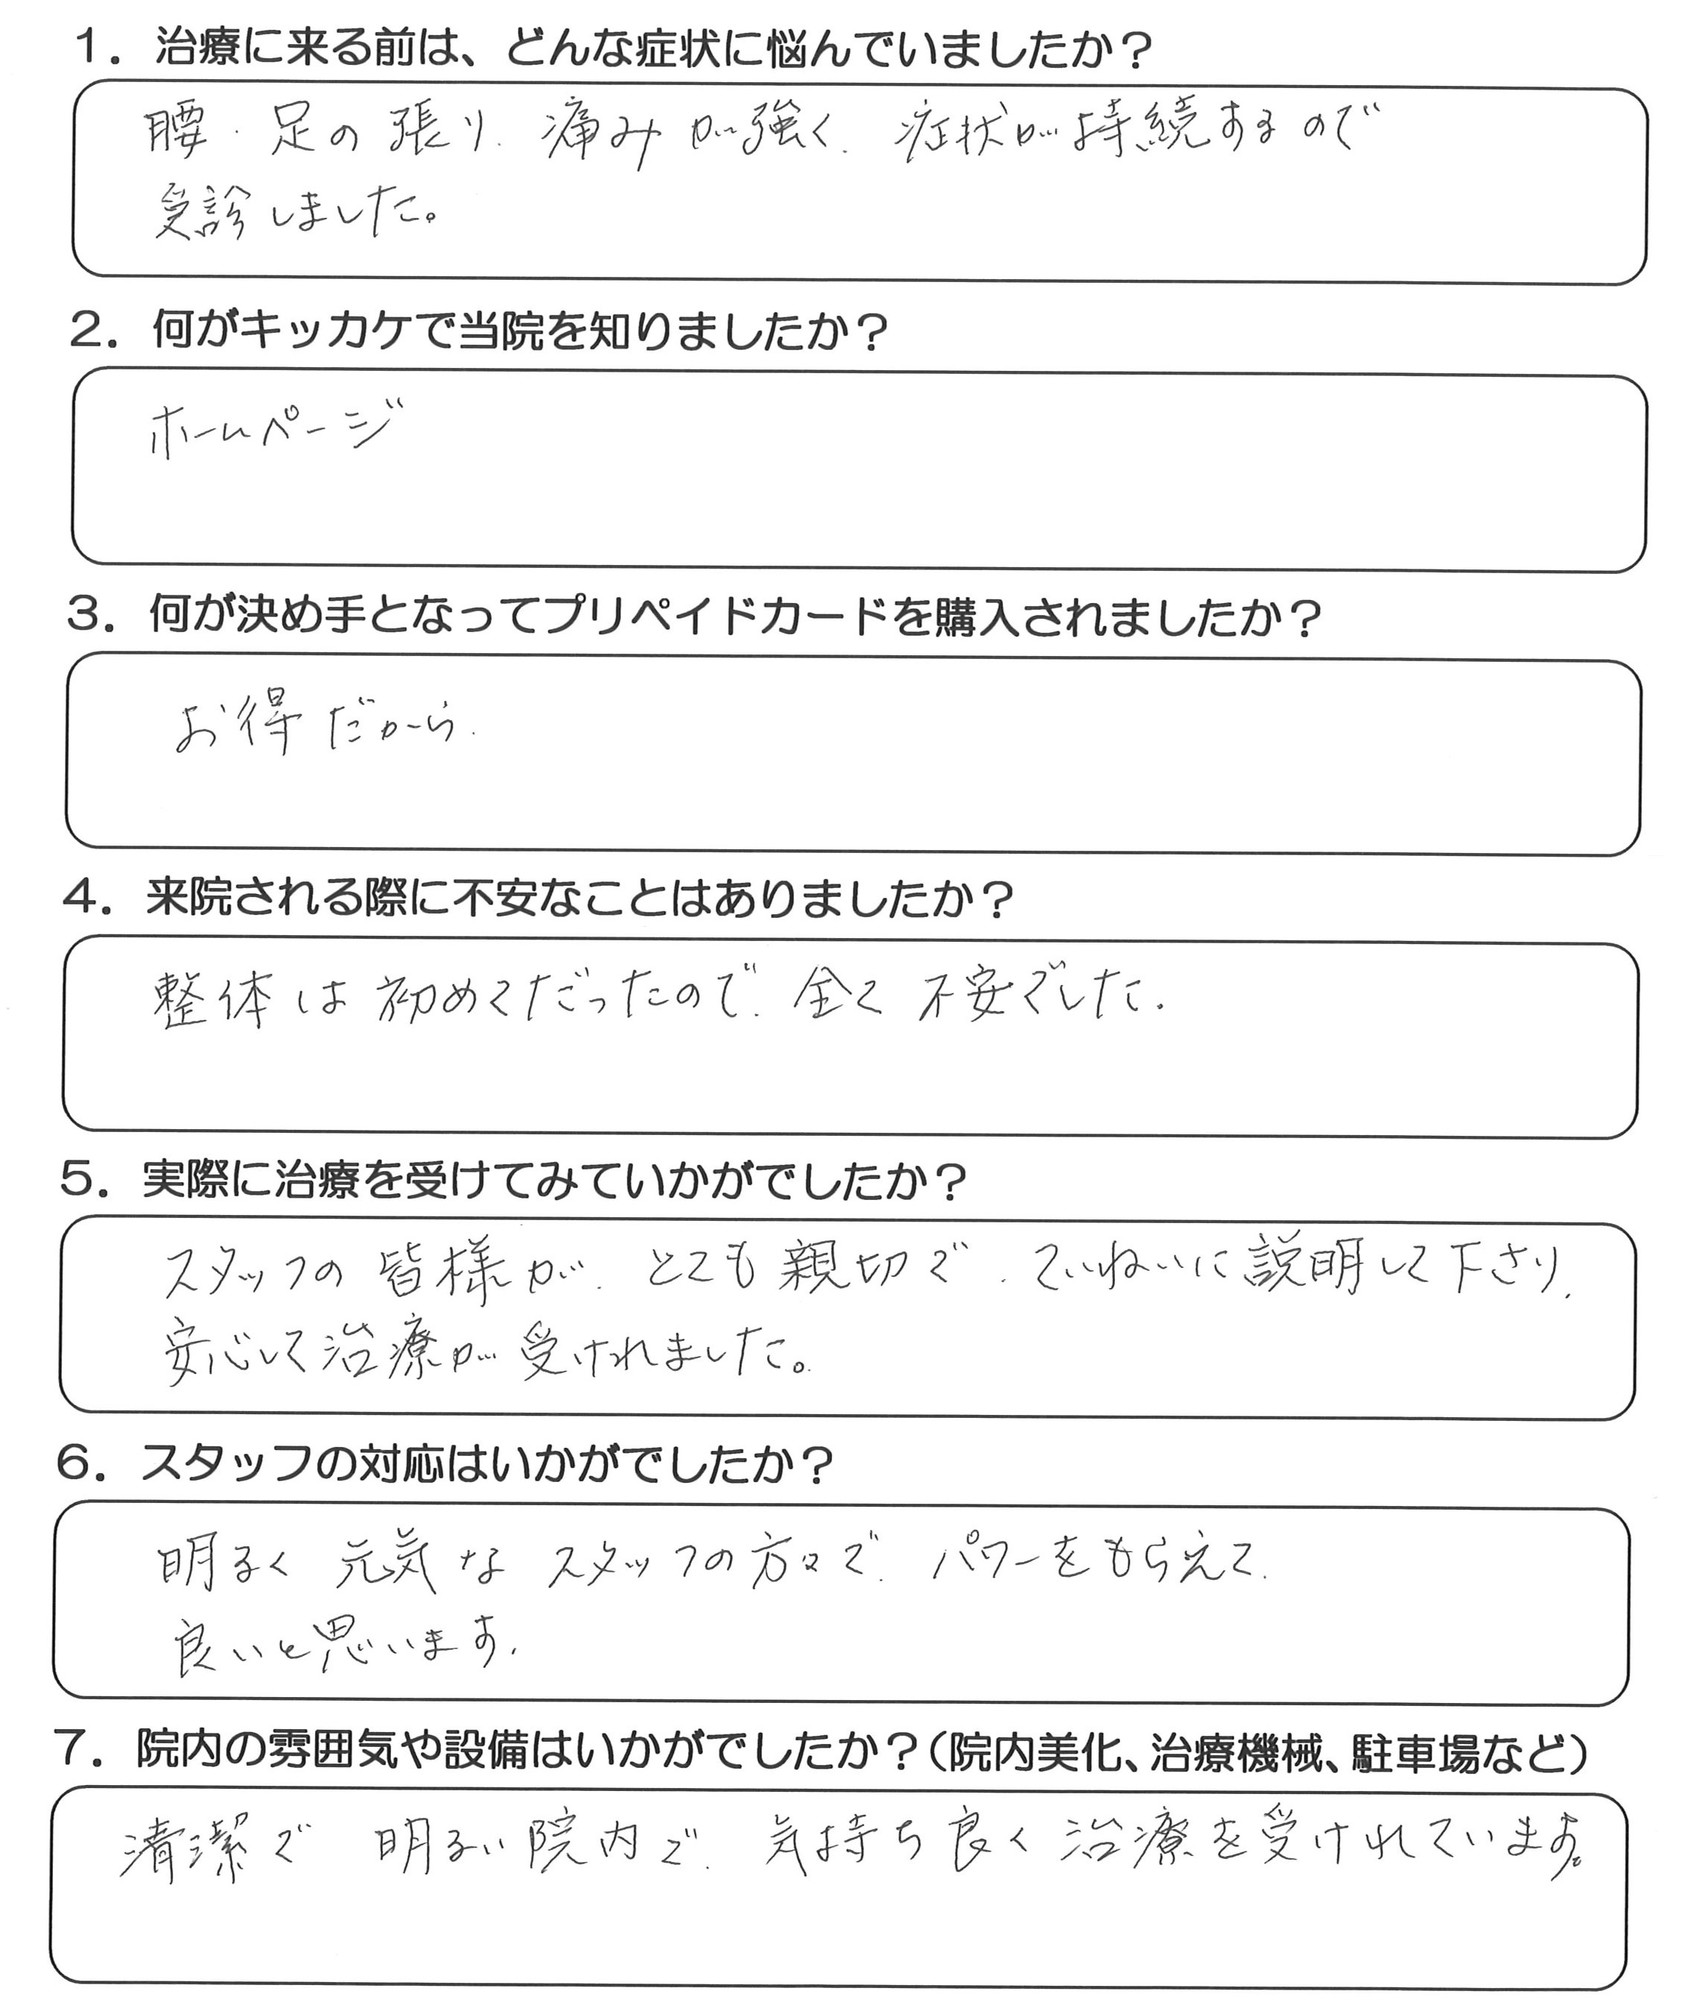 1. 治療に来る前は、どんな症状に悩んでいましたか？
腰・足の張り、痛みが強く、症状が持続するので
受診しました。
2. 何がキッカケで当院を知りましたか？
ホームページ
3. 何が決め手となってプリペイドカードを購入されましたか？
お得だから、
4. 来院される際に不安なことはありましたか？
整体は初めてだったので、全て不安でした。
5. 実際に治療を受けてみていかがでしたか？
スタッフの皆様が、とても親切で、ていねいに説明して下さり、
安心して治療が受けれました。
6. スタッフの対応はいかがでしたか？
明るく元気なスタッフの方々で、パワーをもらえて、
良いと思います。
7. 院内の雰囲気や設備はいかがでしたか？（院内美化、治療機械、駐車場など）
清潔で 明るい院内で、気持ち良く治療を受けれています。